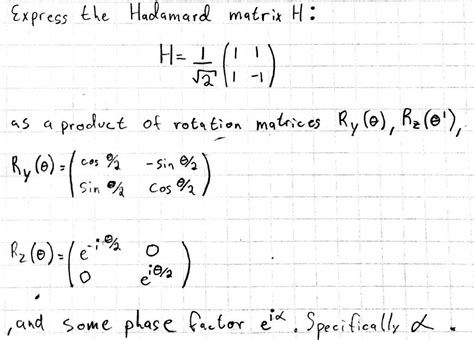 Express the Hadamard matrix H:
H = 1/√2 ( 1 1 ; 1 -1 )
as a product of rotation matrices Ry(θ), Rz(θ'),
Ry(θ) = ( cos θ/2 -sin θ/2 ; sin θ/2 cos θ/2 )
Rz(θ) = ( e^{-iθ/2} 0 ; 0 e^{iθ/2} )
, and some phase factor e^{iα}. Specifically α.